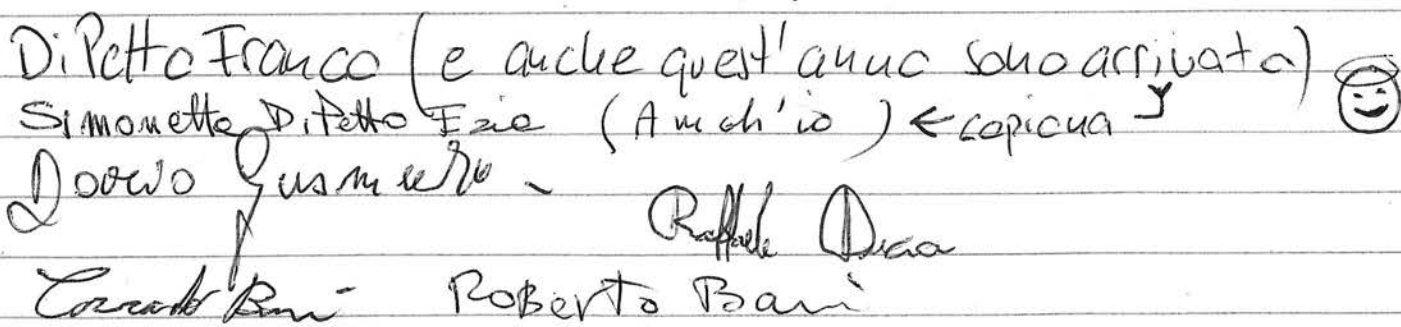 Di Petto Franco (e anche quest'anno sono arrivata)
Simonetta Di Petto Ezio (Anch'io) ← copiona
Raffaele
Corrado Bani Roberto Bani